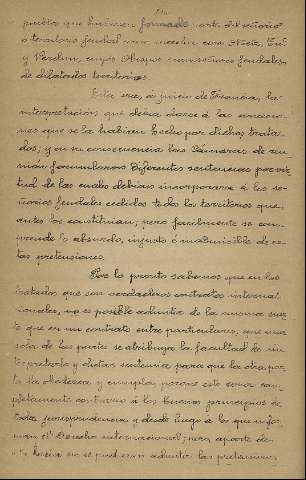 pueblos que hubiesen formado parte del señorío
o territorio feudal como sucedía con Metz, Tul
y Verdun, cuyos Obispos eran señores feudales
de dilatados territorios.
Esta era, á juicio de Francia, la
interpretación que debía darse á las cesiones
que se la habían hecho por dichos trata-
dos; y en su consecuencia las Cámaras de reu-
nión formularon diferentes sentencias por vir-
tud de las cuales debían incorporarse á los se-
ñoríos feudales cedidos todo los territorios que
antes los constituían; pero facilmente se com-
prende lo absurdo, injusto é inadmisible de es-
tas pretensiones.
Por lo pronto sabemos que en los
tratados, que son verdaderos contratos interna-
cionales, no es posible admitir de la misma suer-
te que en un contrato entre particulares, que una
sola de las partes se atribuya la facultad de in-
terpretarlo y dictar sentencia para que la otra par-
te la obedezca y cumpla, porque esto sería com-
pletamente contrario á los buenos principios de
toda jurisprudencia y desde luego á los que infor-
man el Derecho internacional; pero aparte de
esto hacia no se pudieran admitir las pretensiones